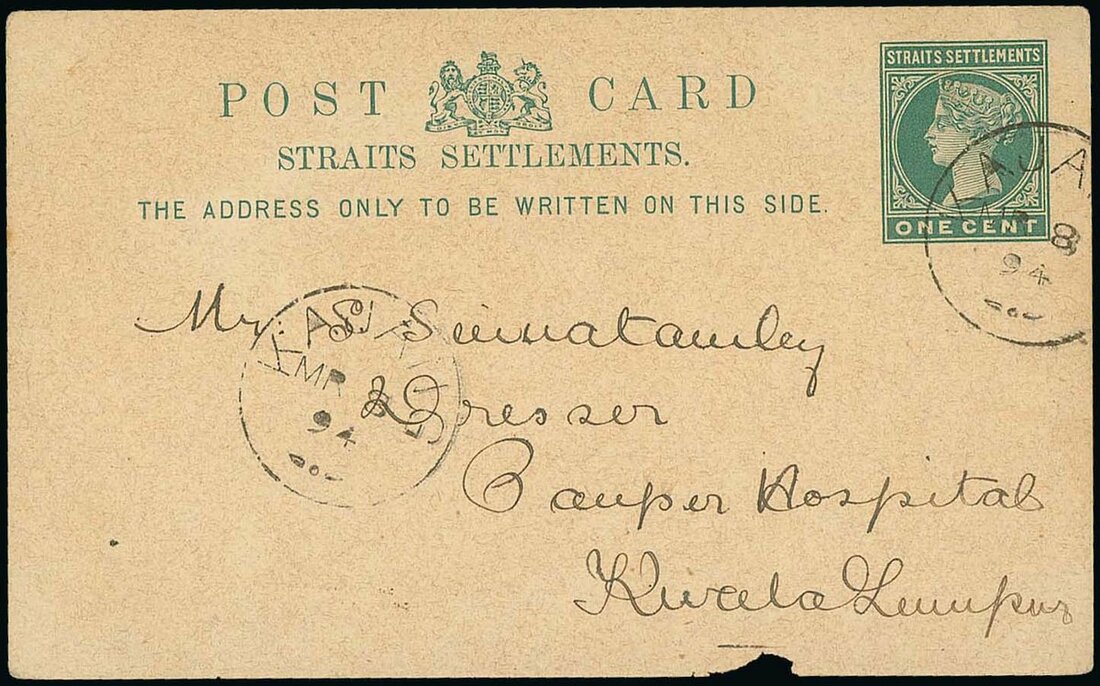 POST CARD
STRAITS SETTLEMENTS.
THE ADDRESS ONLY TO BE WRITTEN ON THIS SIDE.
STRAITS SETTLEMENTS
ONE CENT
KAJA
MR 8
94
Mr. S. Sinnatamby
Dresser
Pauper Hospital
Kwala Lumpur
KAJANG
MR 8
94